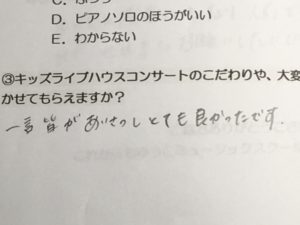 D. ピアノソロのほうがいい
E. わからない
③キッズライブハウスコンサートのこだわりや、大変
かせてもらえますか？
一言皆があいさつしとても良かったです.